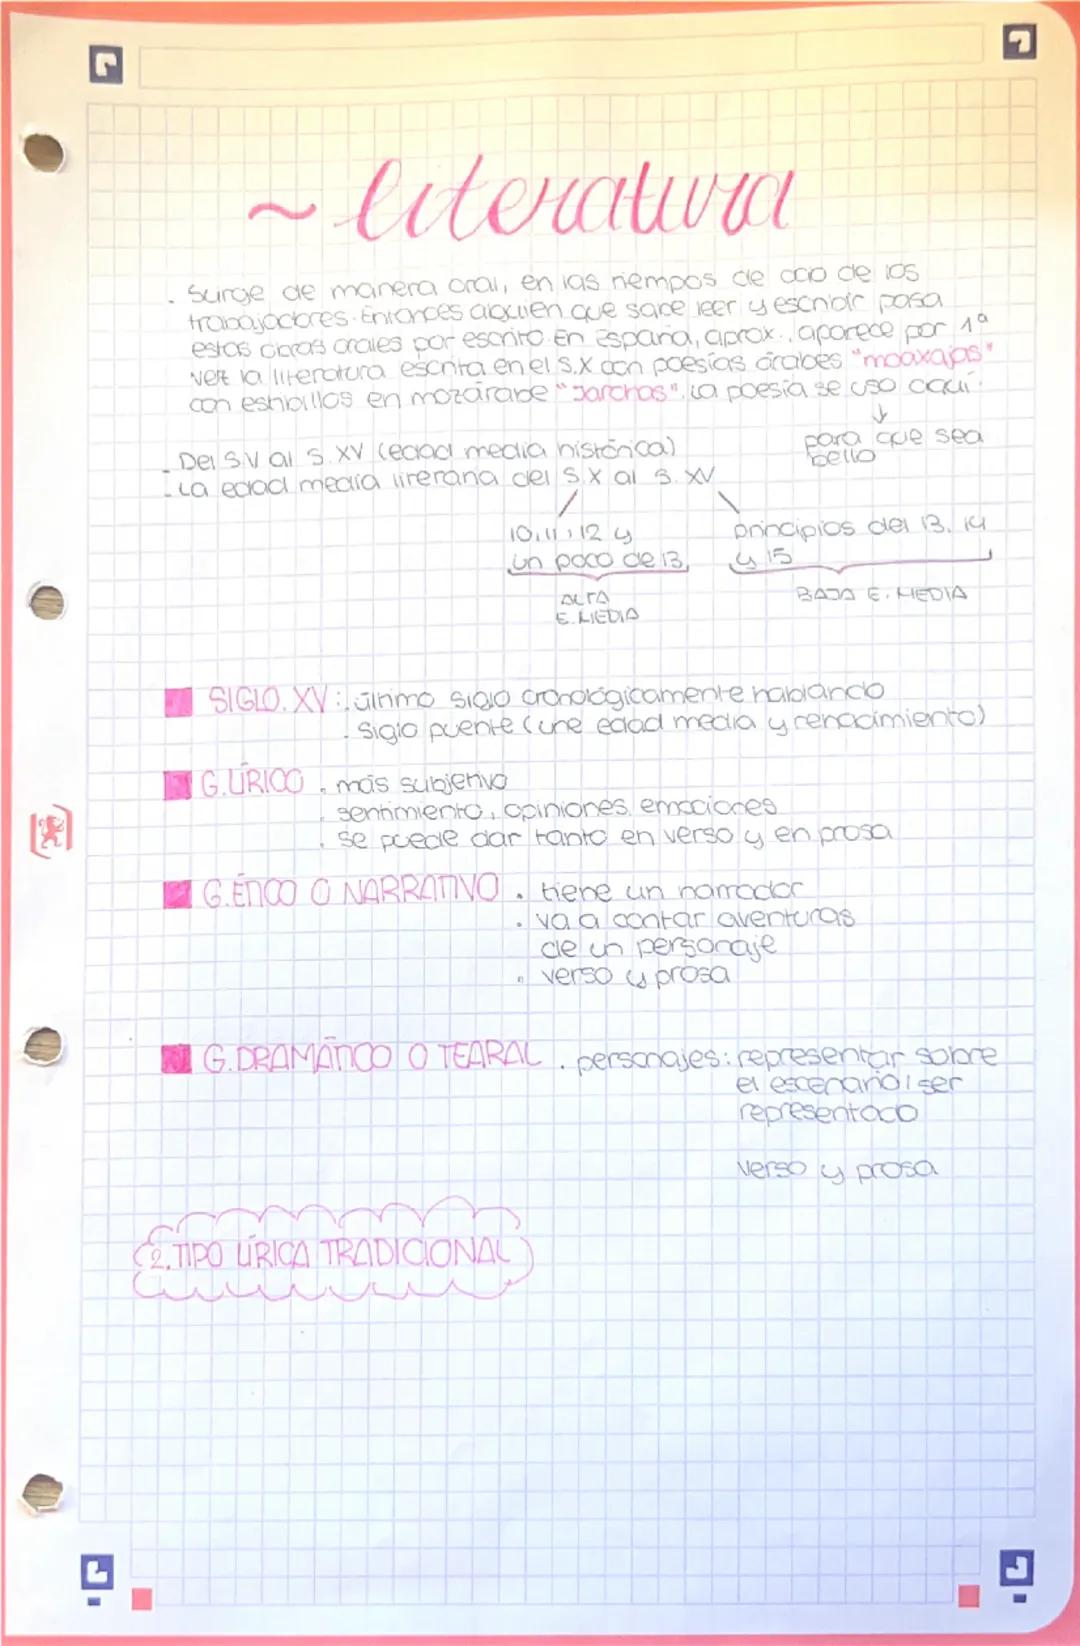 ~ literatura
. Surge de manera oral, en las tiempos de ocio de los
trabajadores. Entonces alguien que sabe leer y escribir pasa
estas obras orales por escrito. En España, aprox., aparece por 1ª
vez la literatura escrita en el S.X con poesías árabes "moaxajas"
con estribillos en mozárabe "Jarchas". La poesía se uso aquí.
para que sea
bello
- Del S.V al S. XV (edad media histórica)
- La edad media literaria del S.X al S. XV
10, 11, 12 y
un poco de 13
principios del 13, 14
y 15
ALTA
E. MEDIA
BAJA E. MEDIA
SIGLO. XV: . último siglo cronológicamente hablando
. siglo puente (une edad media y renacimiento)
G.LÍRICO . más subjetivo
. sentimiento, opiniones, emociones
. se puede dar tanto en verso y en prosa
G.ÉPICO O NARRATIVO . tiene un narrador
. va a contar aventuras
de un personaje
. verso y prosa
G.DRAMÁTICO O TEARAL . personajes: representar sobre
el escenario / ser
representado
verso y prosa
2. TIPO LÍRICA TRADICIONAL